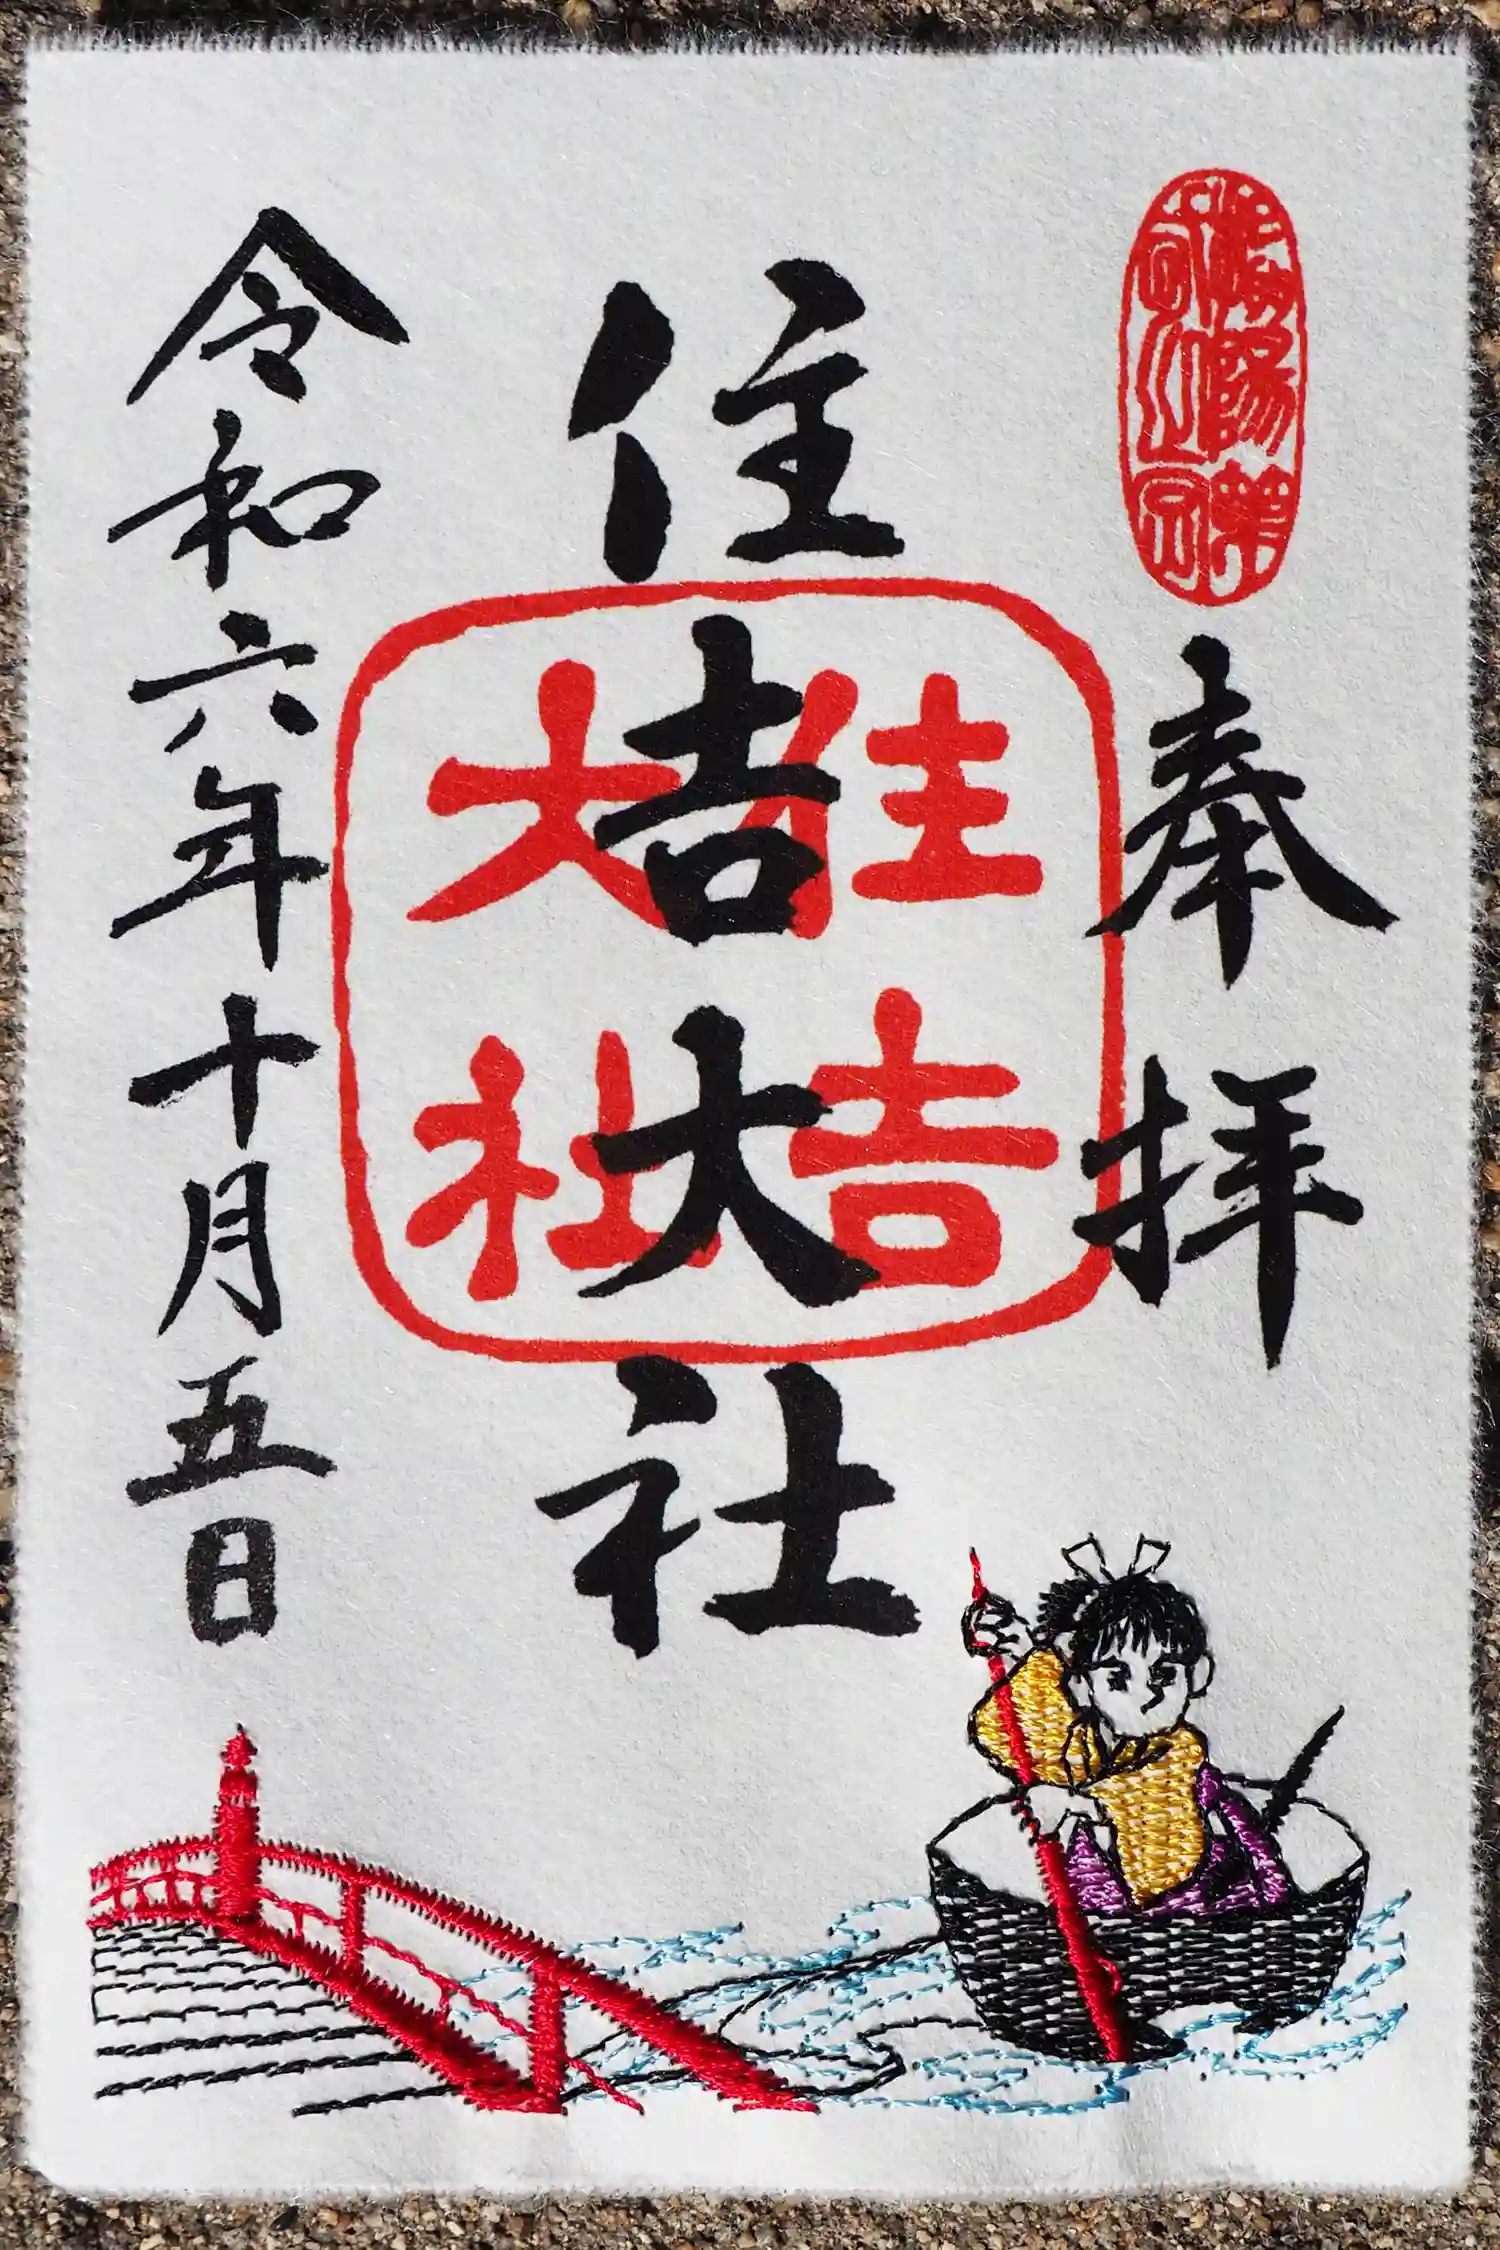 奉拝
住吉大社
住吉
大社
令和六年十月五日